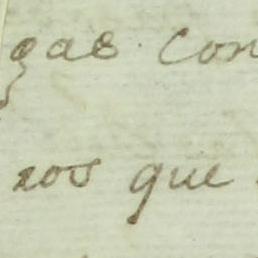 gas con
ros que